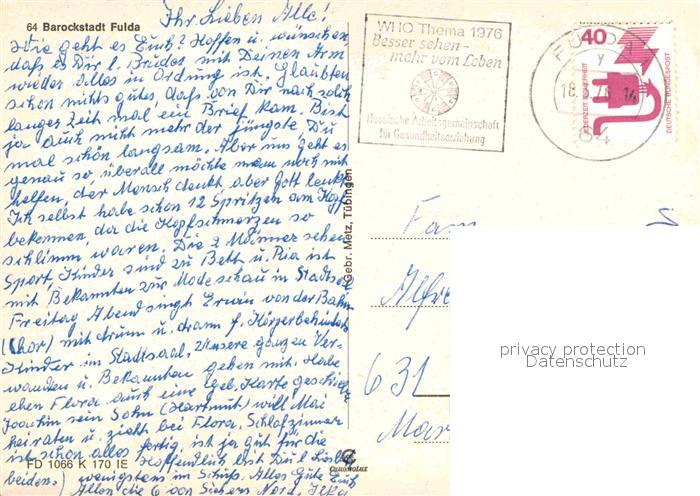 64 Barockstadt Fulda
Ihr Lieben Alle!
Wie geht es Euch? Hoffen u. wünschen,
daß es Dir l. Brüdes mit Deinen Arm
wieder alles in Ordnung ist. Glaubten
schon nichts gutes, daß von Dir nach solch
langer Zeit mal ein Brief kam. Bist
ja auch nicht mehr der jüngste Du
mal schön langsam. Aber uns geht es
genau so, überall möchte man noch mit
helfen, der Mensch denkt aber Gott lenkt
Ich selbst habe schon 12 Spritzen am Kopf
bekommen, da die Kopfschmerzen so
schlimm waren. Die 2 Männer sehen
Sport, Kinder sind zu Bett u. Ria ist
mit Bekannten zur Modeschau in Stadtsaal
Freitag Abend singt Erwin von der Bahn
(Chor) mit drum u. dram f. Körperbehinderte
Kinder im Stadtsaal. Unsere ganzen Ver-
wandten u. Bekannten gehen mit. Habe
eben Flora auch eine Geb. Karte geschickt
Joachim sein Sohn (Hartmut) will Mai
heiraten u. zieht bei Flora. Schlafzimmer
ist schon alles fertig, ist ja gut für die
beiden.) Hoffendlich bist Du l.
wenigstens im Schuß. Alles Gute Euch
Allen die 6 von
FD 1066 K 170 IE
Gebr. Metz, Tübingen
WHO Thema 1976
Besser sehen -
mehr vom Leben
Hessische Arbeitsgemeinschaft
für Gesundheitserziehung
FULDA
y
18.3.76-14
64
40
JEDERZEIT SICHERHEIT
DEUTSCHE BUNDESPOST
Fam
Alfre
631
Mar
privacy protection
Datenschutz